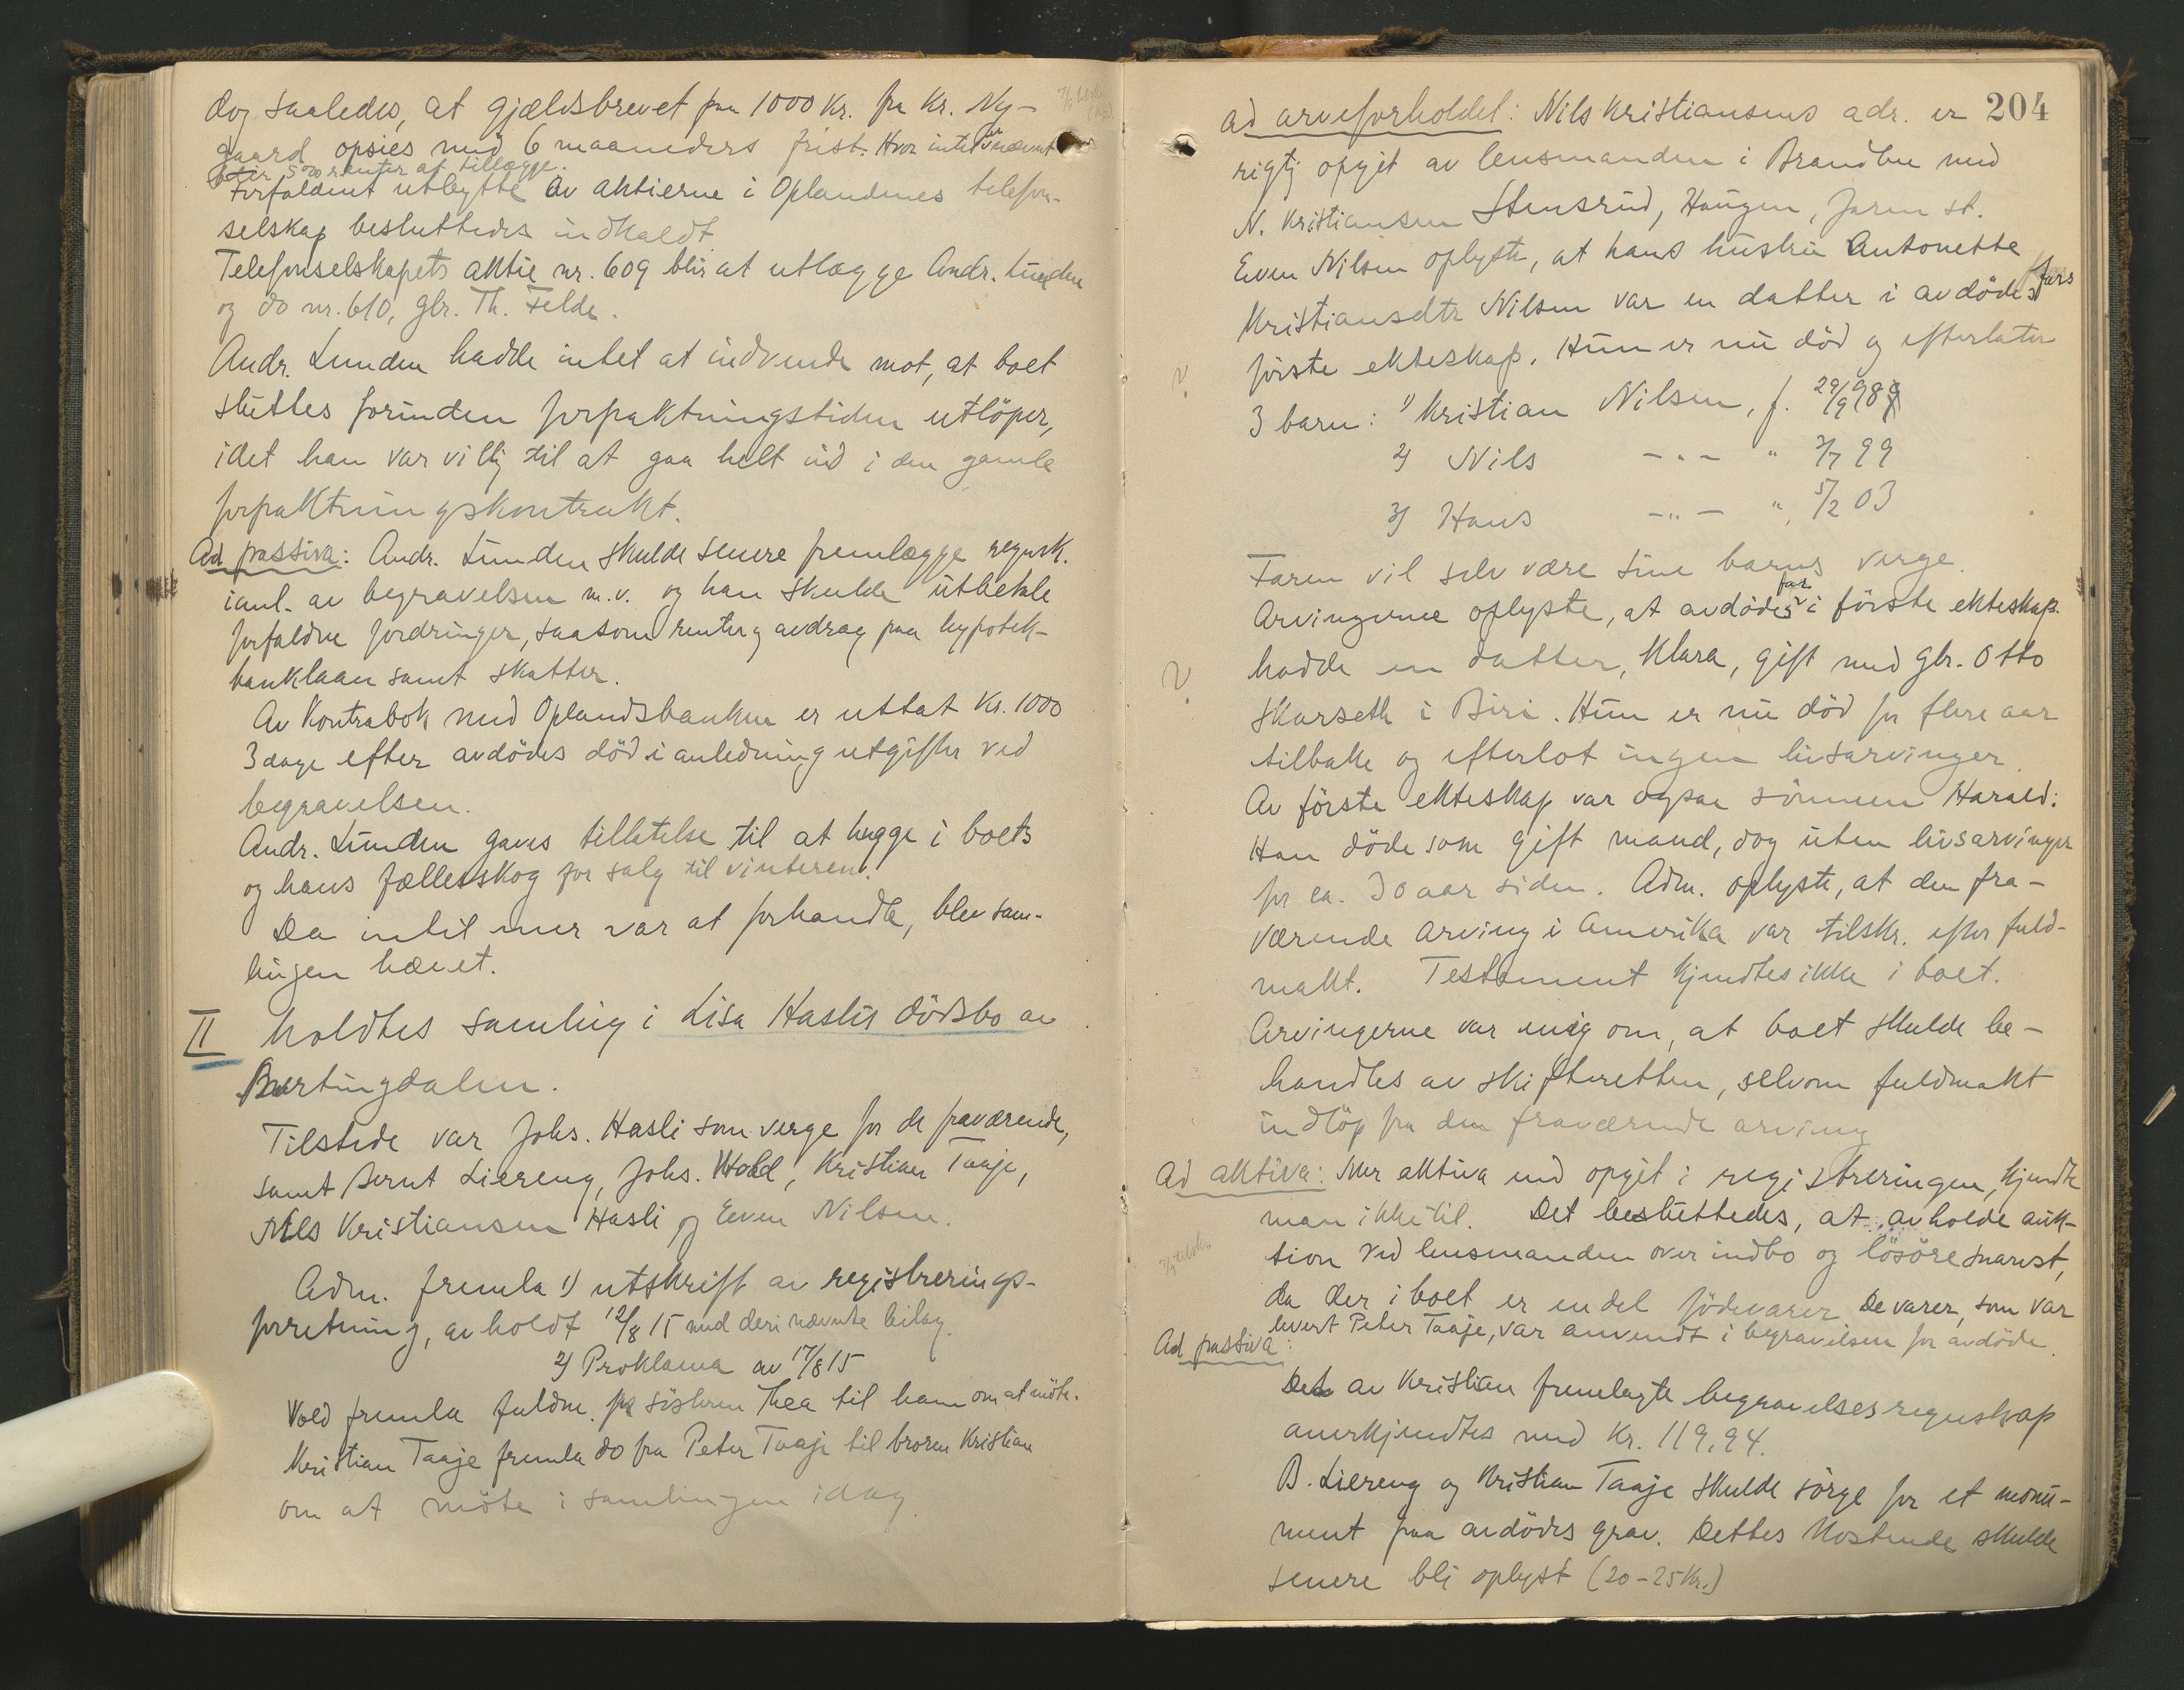 dog saaledes, at gjældsbrevet paa 1000 Kr. fra Kr. Ny-
gaard opsies med 6 maaneders frist. Hvor intet er nævnt
blir 5% renter at tillægge.
Forfaldent utbytte av aktierne i Oplandenes telefon-
selskap besluttedes indkaldt.
Telefonselskapets aktie nr. 609 blir at utlægge Andr. Lunden
og do nr. 610, gbr. Th. Felde.
Andr. Lunden hadde intet at indvende mot, at boet
sluttes forinden forpaktningstiden utlöper,
idet han var villig til at gaa helt ind i den gamle
forpaktningskontrakt.
Ad passiva: Andr. Lunden skulde senere fremlægge regnsk.
ianl. av begravelsen m.v. og han skulde utbetale
forfaldne fordringer, saasom renter og avdrag paa hypotek-
banklaan samt skatter.
Av Kontrabok med Oplandsbanken er uttat Kr. 1000
3 dage efter avdödes död i anledning utgifter ved
begravelsen.
Andr. Lunden gaves tillatelse til at hugge i boets
og hans fællesskog for salg til vinteren.
Da intet mer var at forhandle, blev sam-
lingen hævet.
II holdtes samling i Lisa Haslis dödsbo av
Tilstede var Johs. Hasli som verge for de fraværende,
samt Bernt Liereng, Johs. Vold, Kristian Taaje,
Nils Kristiansen Hasli og Even Nilsen.
Adm. fremla 1) utskrift av registrerings-
forretning, avholdt 12/8 15 med deri nævnte bilag.
2) Proklama av 17/8 15
Vold fremla fuldm. fra söstren Thea til ham om at möte.
Kristian Taaje fremla do fra Peter Taaje til broren Kristian
om at möte i samlingen idag.
204
ad arveforholdet: Nils Kristiansens adr. er
rigtig opgit av lensmanden i Brandbu med
N. Kristiansen Stensrud, Haugen, Jaren st.
Even Nilsen oplyste, at hans hustru Antonette
Kristiansdtr Nilsen var en datter i avdödes fars
förste ekteskap. Hun er nu död og efterlater
3 barn: 1) Kristian Nilsen, f. 29/9 98
2) Nils -"- " 2/7 99
3) Hans -"- " 5/2 03
Faren vil selv være sine barns verge.
Arvingerne oplyste, at avdödes far i förste ekteskap.
hadde en datter, Klara, gift med gbr. Otto
Skarseth i Biri. Hun er nu död for flere aar
tilbake og efterlot ingen livsarvinger.
Av förste ekteskap var ogsaa sönnen Harald:
Han döde som gift mand, dog uten livsarvinger
for ca. 30 aar siden. Adm. oplyste, at den fra-
værende arving i Amerika var tilskr. efter fuld-
makt. Testament kjendtes ikke i boet.
Arvingerne var enig om, at boet skulde be-
handles av skifteretten, selvom fuldmakt
indlöp fra den fraværende arving
Ad aktiva: Mer aktiva end opgit i registreringen, kjendte
man ikke til. Det besluttedes, at avholde auk-
tion ved lensmanden over indbo og lösöre snarest,
da der i boet er en del födevarer. De varer, som var
levert Peter Taaje, var anvendt i begravelsen for avdöde.
Ad passiva:
Det av Kristian fremlagte begravelsesregnskap
anerkjendtes med Kr. 119,94.
B. Liereng og Kristian Taaje skulde sörge for et monu-
ment paa avdödes grav. Dettes kostende skulde
senere bli oplyst (20-25 Kr.)